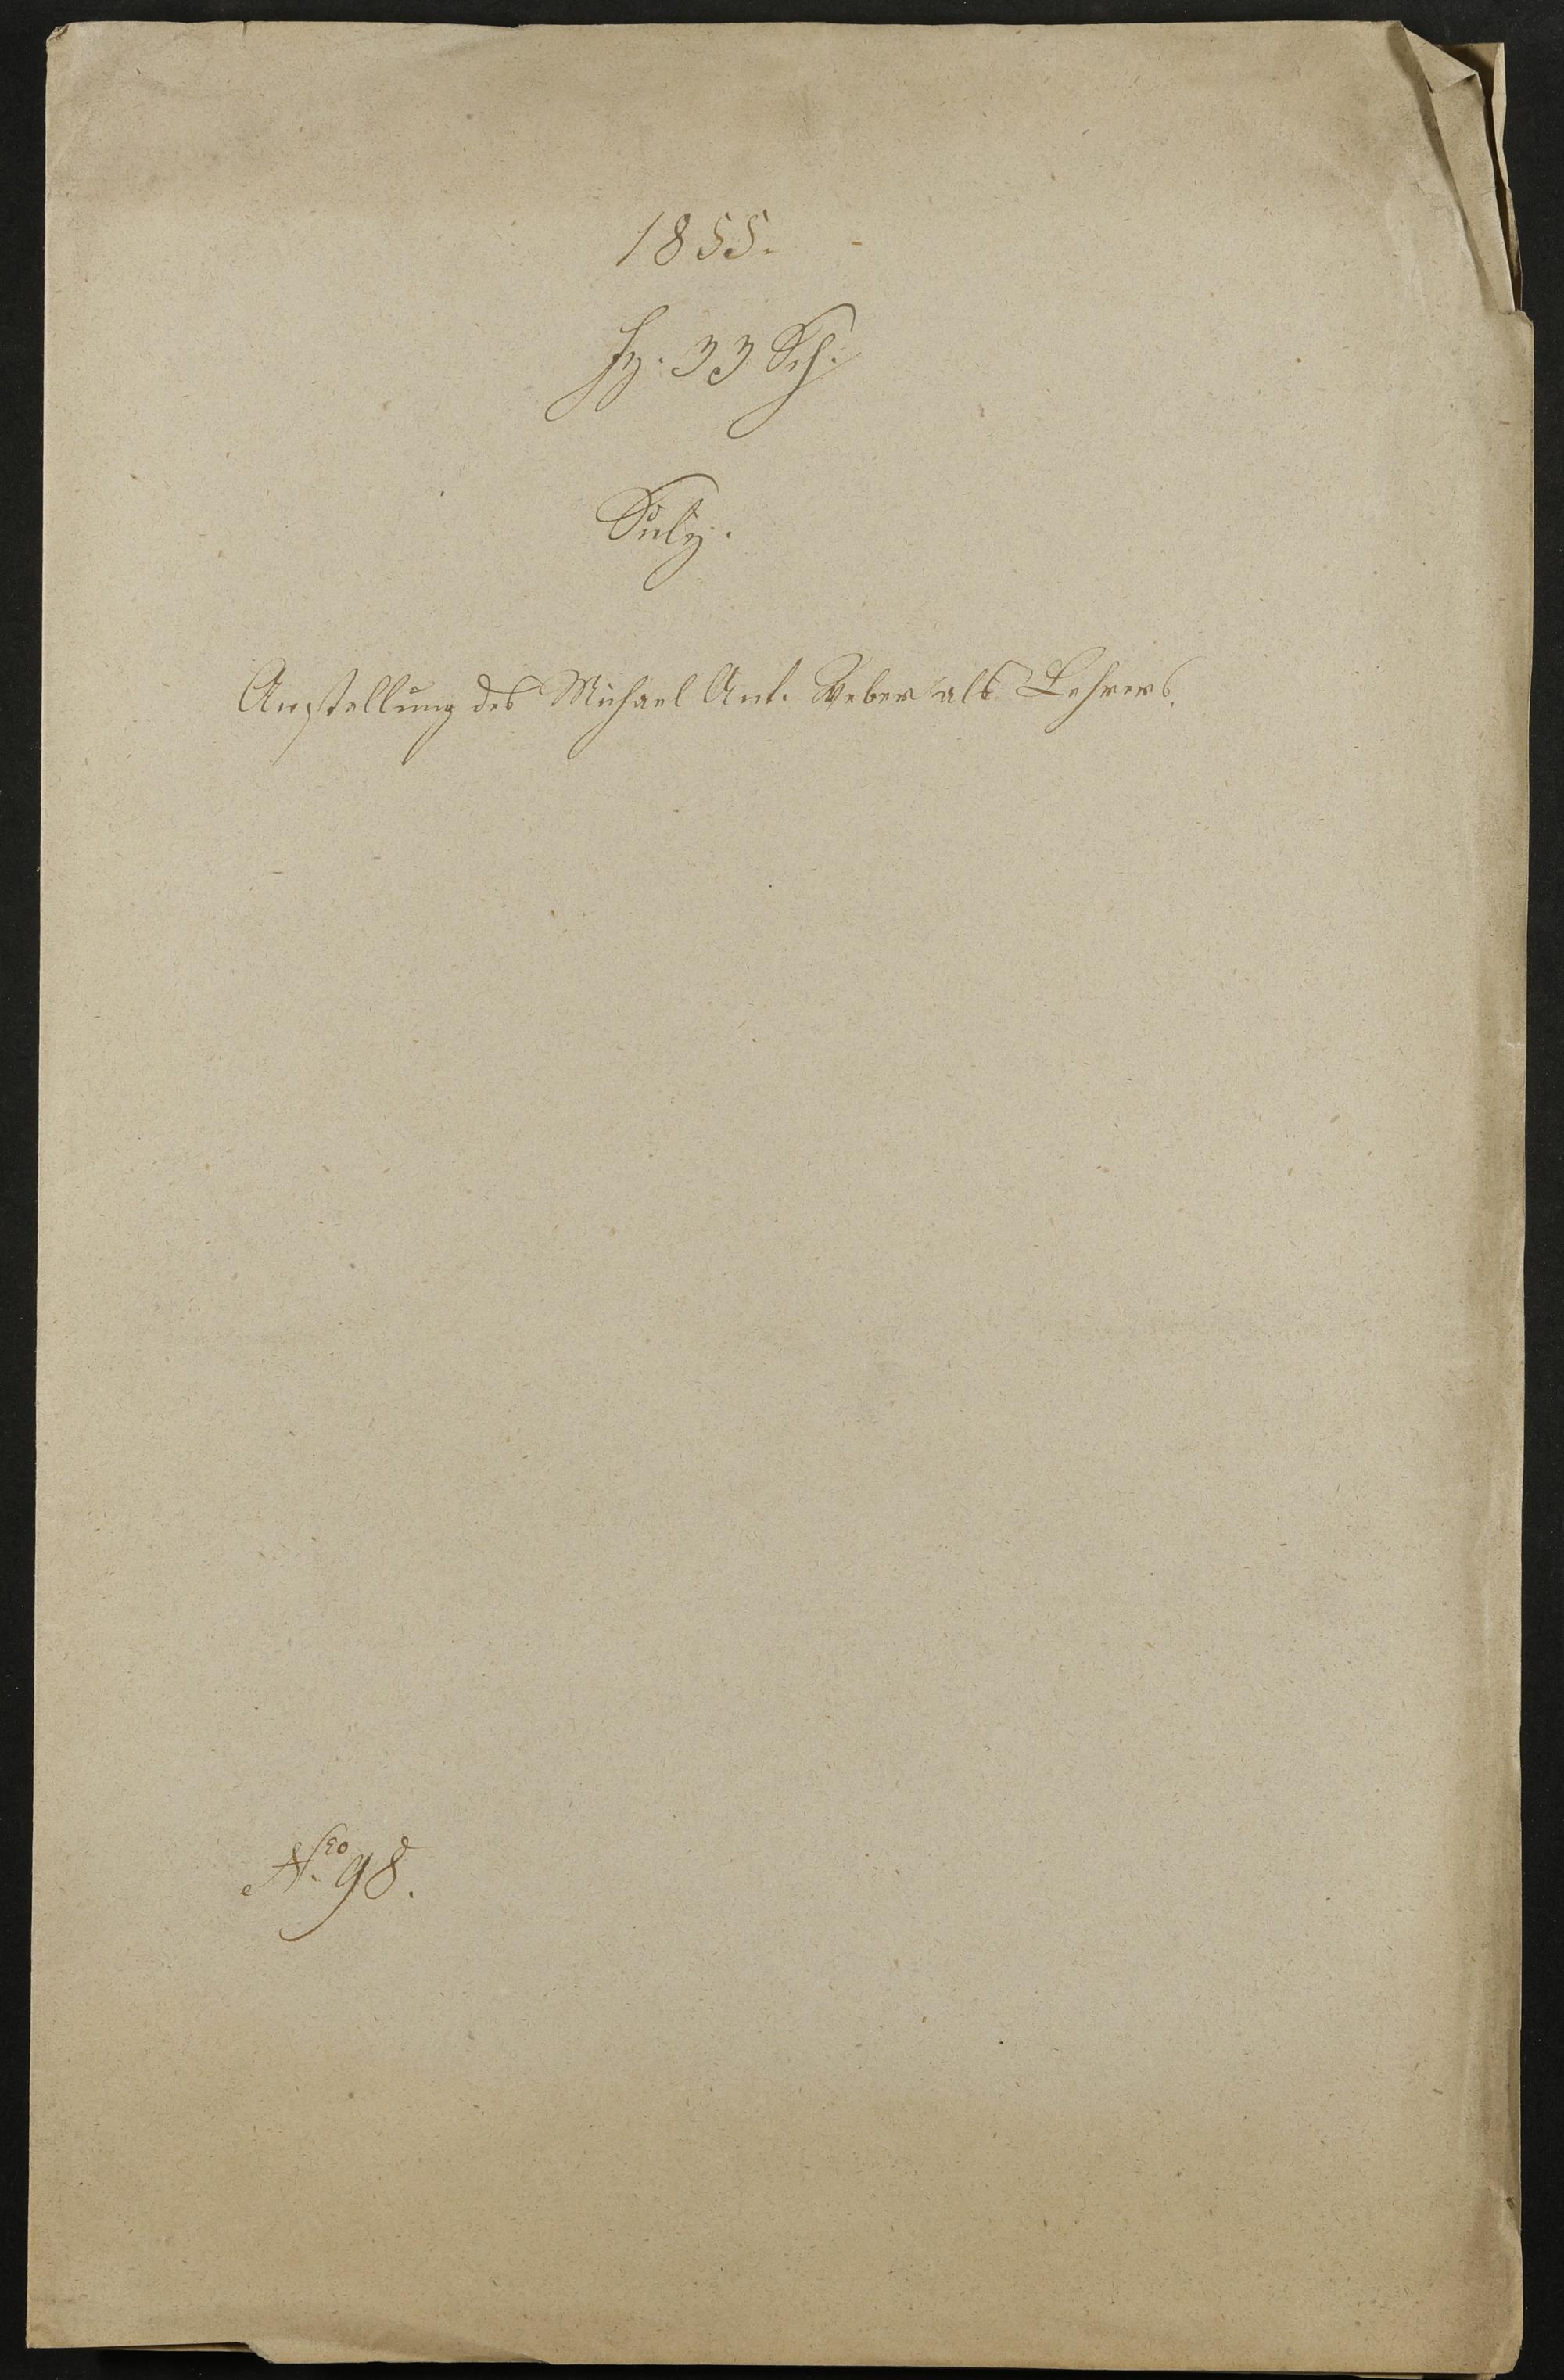 1855.
Fz. 33 Sch.
Sulz.
Anstellung des Michael Ant. Weber als Lehrers.
Nro 98.